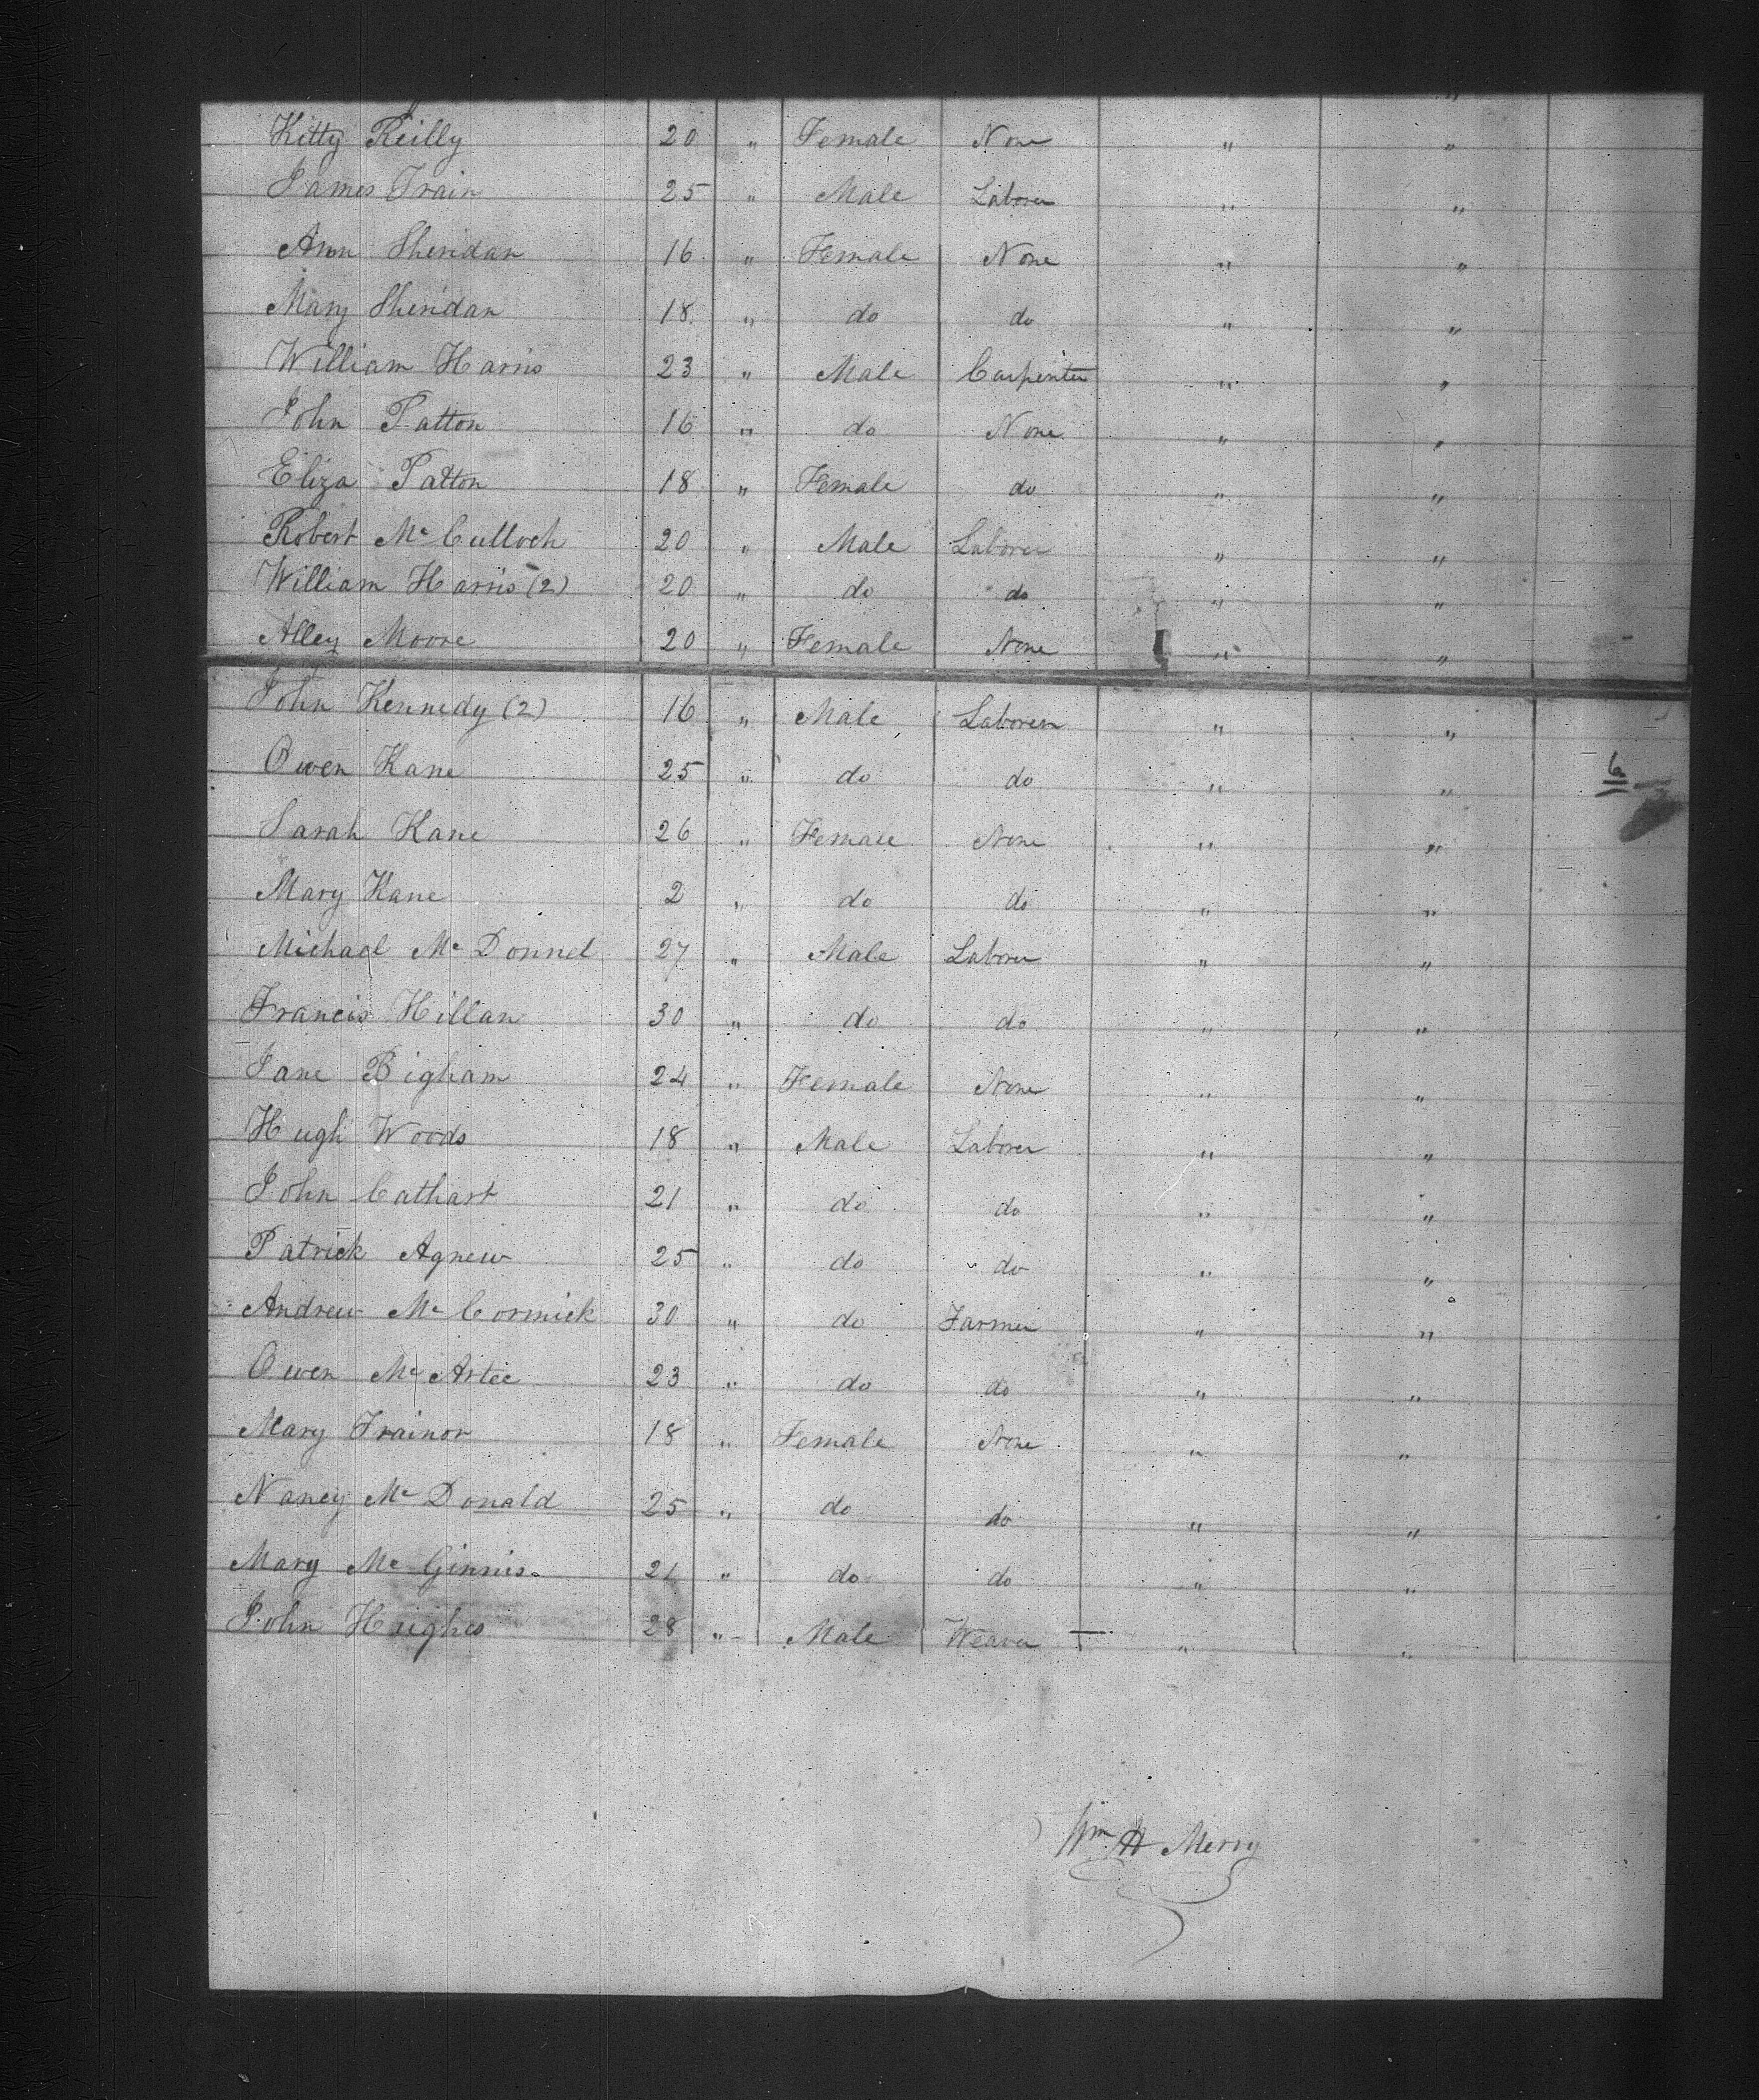 Kitty Reilly 20 " Female None " "
James Train 25 " Male Laborer " "
Ann Sheridan 16 " Female None " "
Mary Sheridan 18 " do do " "
William Harris 23 " Male Carpenter " "
John Patton 16 " do None " "
Eliza Patton 18 " Female do " "
Robert Mc Culloch 20 " Male Laborer " "
William Harris (2) 20 " do do " "
Alley Moore 20 " Female None " "
John Kennedy (2) 16 " Male Laborer " "
Owen Kane 25 " do do " "
Sarah Kane 26 " Female None " "
Mary Kane 2 " do do " "
Michael Mc Donnel 27 " Male Laborer " "
Francis Hillan 30 " do do " "
Jane Bigham 24 " Female None " "
Hugh Woods 18 " Male Laborer " "
John Cathart 21 " do do " "
Patrick Agnew 25 " do do " "
Andrew Mc Cormick 30 " do Farmer " "
Owen Mc Artee 23 " do do " "
Mary Trainor 18 " Female None " "
Nancy Mc Donald 25 " do do " "
Mary Mc Ginnis 21 " do do " "
John Hughes 28 " Male Weaver " "
Wm H Merry